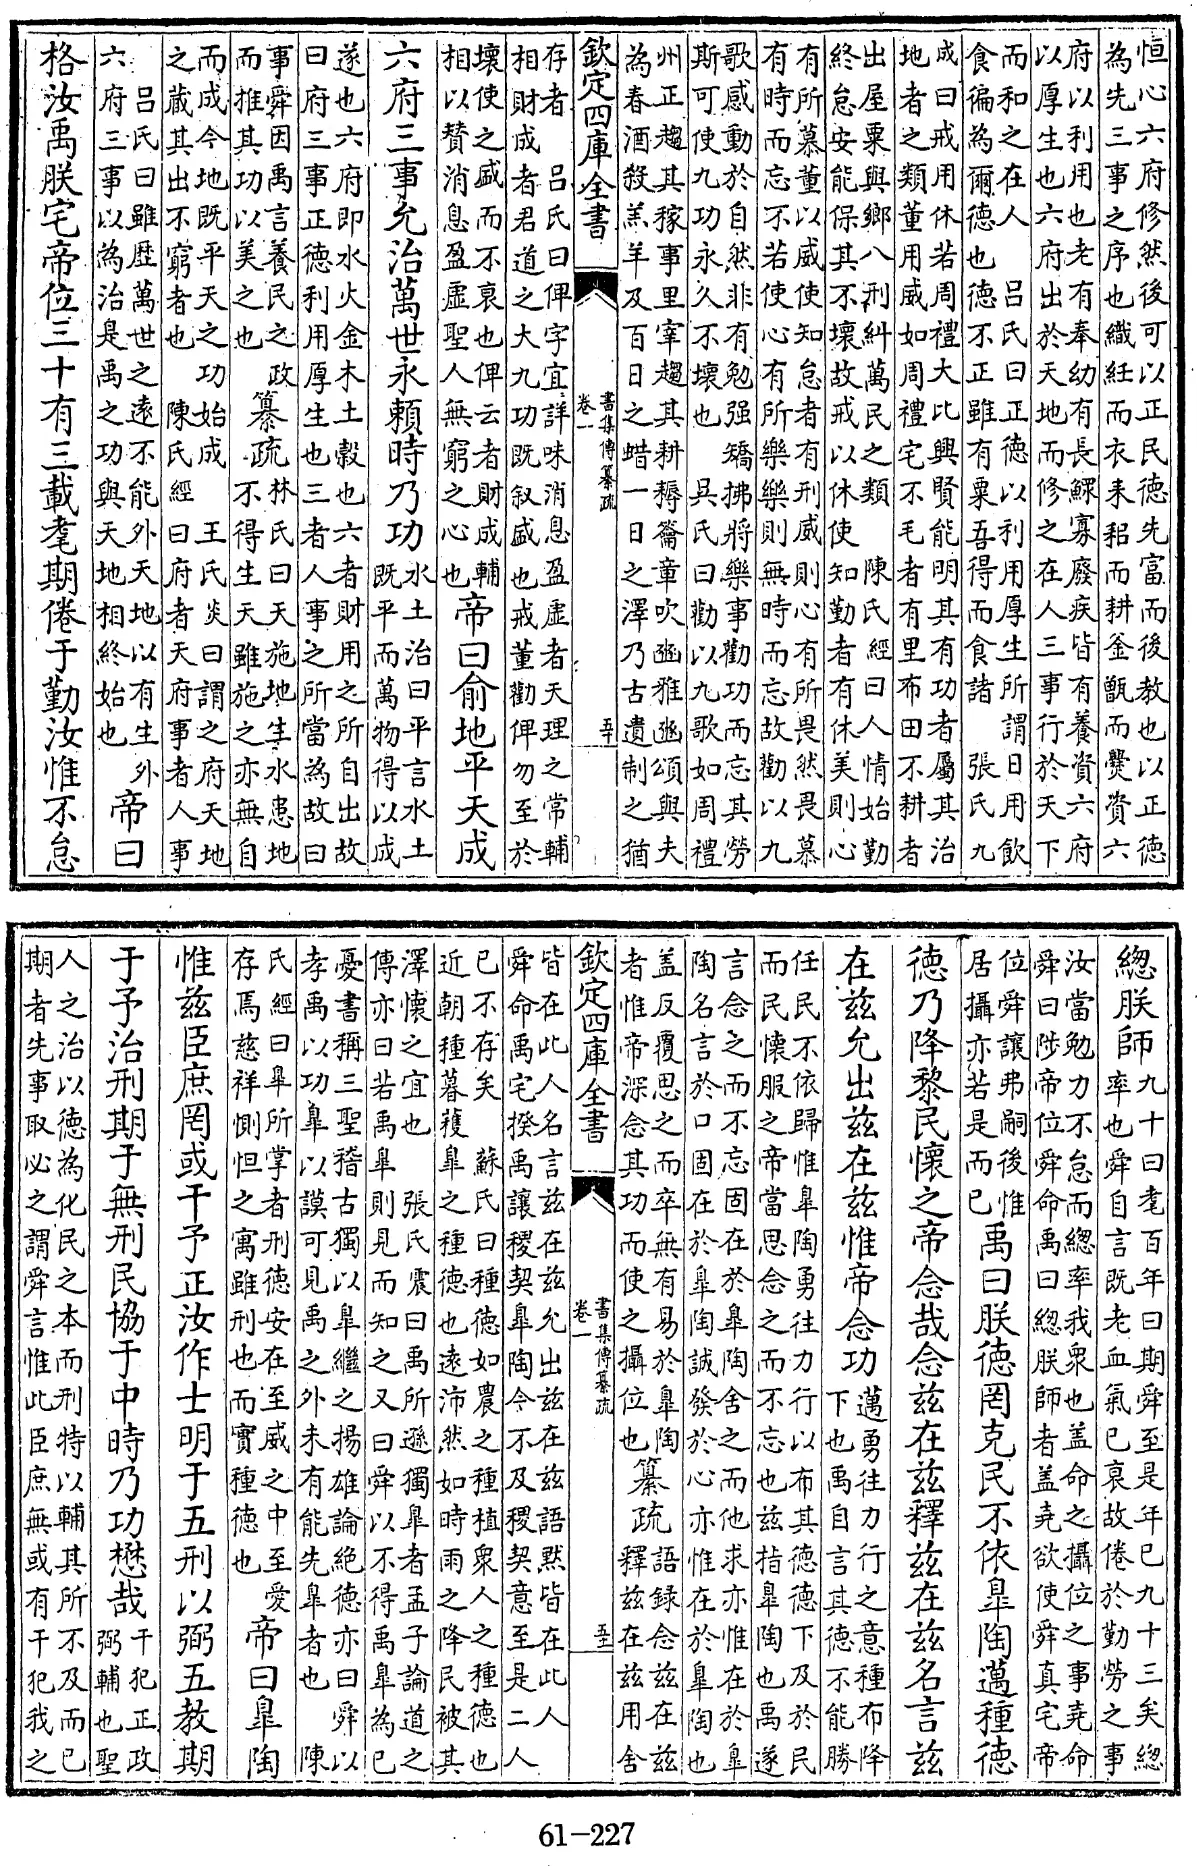 恒心六府修然後可以正民德先富而後教也以正德
為先三事之序也織紝而衣耒耜而耕釜甑而爨資六
府以利用也老有奉幼有長鰥寡廢疾皆有養資六府
以厚生也六府出於天地而修之在人三事行於天下
而和之在人　吕氏曰正德以利用厚生所謂日用飲
食徧為爾德也德不正雖有粟吾得而食諸　張氏九
成曰戒用休若周禮大比興賢能明其有功者屬其治
地者之類董用威如周禮宅不毛者有里布田不耕者
出屋粟與鄉八刑糾萬民之類　陳氏經曰人情始勤
終怠安能保其不壞故戒以休使知勤者有休美則心
有所慕董以威使知怠者有刑威則心有所畏然畏慕
有時而忘不若使心有所樂樂則無時而忘故勸以九
歌感動於自然非有勉强矯拂將樂事勸功而忘其勞
斯可使九功永久不壞也　吳氏曰勸以九歌如周禮
州正趨其稼事里宰趨其耕耨籥章吹豳雅豳頌與夫
為春酒殺羔羊及百日之蜡一日之澤乃古遺制之猶
欽定四庫全書
書集傳纂疏
卷一
五十
存者　吕氏曰俾字宜詳味消息盈虚者天理之常輔
相財成者君道之大九功既叙盛也戒董勸俾勿至於
壞使之盛而不衰也俾云者財成輔
相以贊消息盈虚聖人無窮之心也
帝曰俞地平天成
六府三事允治萬世永賴時乃功
水土治曰平言水土
既平而萬物得以成
遂也六府即水火金木土穀也六者財用之所自出故
曰府三事正德利用厚生也三者人事之所當為故曰
事舜因禹言養民之政
而推其功以美之也
纂疏
林氏曰天施地生水患地
不得生天雖施之亦無自
而成今地既平天之功始成　王氏炎曰謂之府天地
之藏其出不窮者也　陳氏經曰府者天府事者人事
吕氏曰雖歴萬世之遠不能外天地以有生外
六府三事以為治是禹之功與天地相終始也
帝曰
格汝禹朕宅帝位三十有三載耄期倦于勤汝惟不怠
總朕師
九十曰耄百年曰期舜至是年已九十三矣總
率也舜自言既老血氣已衰故倦於勤勞之事
汝當勉力不怠而總率我衆也盖命之攝位之事堯命
舜曰陟帝位舜命禹曰總朕師者盖堯欲使舜真宅帝
位舜讓弗嗣後惟
居攝亦若是而已
禹曰朕德罔克民不依臯陶邁種德
德乃降黎民懷之帝念哉念兹在兹釋兹在兹名言兹
在兹允出兹在兹惟帝念功
邁勇往力行之意種布降
下也禹自言其德不能勝
任民不依歸惟臯陶勇往力行以布其德德下及於民
而民懷服之帝當思念之而不忘也兹指臯陶也禹遂
言念之而不忘固在於臯陶舍之而他求亦惟在於臯
陶名言於口固在於臯陶誠發於心亦惟在於臯陶也
盖反覆思之而卒無有易於臯陶
者惟帝深念其功而使之攝位也
纂疏
語録念兹在兹
釋兹在兹用舍
欽定四庫全書
書集傳纂疏
卷一
五十一
皆在此人名言兹在兹允出兹在兹語黙皆在此人
舜命禹宅揆禹讓稷契臯陶今不及稷契意至是二人
已不存矣　蘇氏曰種德如農之種植衆人之種德也
近朝種暮穫臯之種德也遠沛然如時雨之降民被其
澤懷之宜也　張氏震曰禹所遜獨臯者孟子論道之
傳亦曰若禹臯則見而知之又曰舜以不得禹臯為已
憂書稱三聖稽古獨以臯繼之揚雄論絶德亦曰舜以
孝禹以功臯以謨可見禹之外未有能先臯者也　陳
氏經曰臯所掌者刑德安在至威之中至愛
存焉慈祥惻怛之寓雖刑也而實種德也
帝曰臯陶
惟兹臣庶罔或干予正汝作士明于五刑以弼五教期
于予治刑期于無刑民協于中時乃功懋哉
干犯正政
弼輔也聖
人之治以德為化民之本而刑特以輔其所不及而已
期者先事取必之謂舜言惟此臣庶無或有干犯我之
61-227